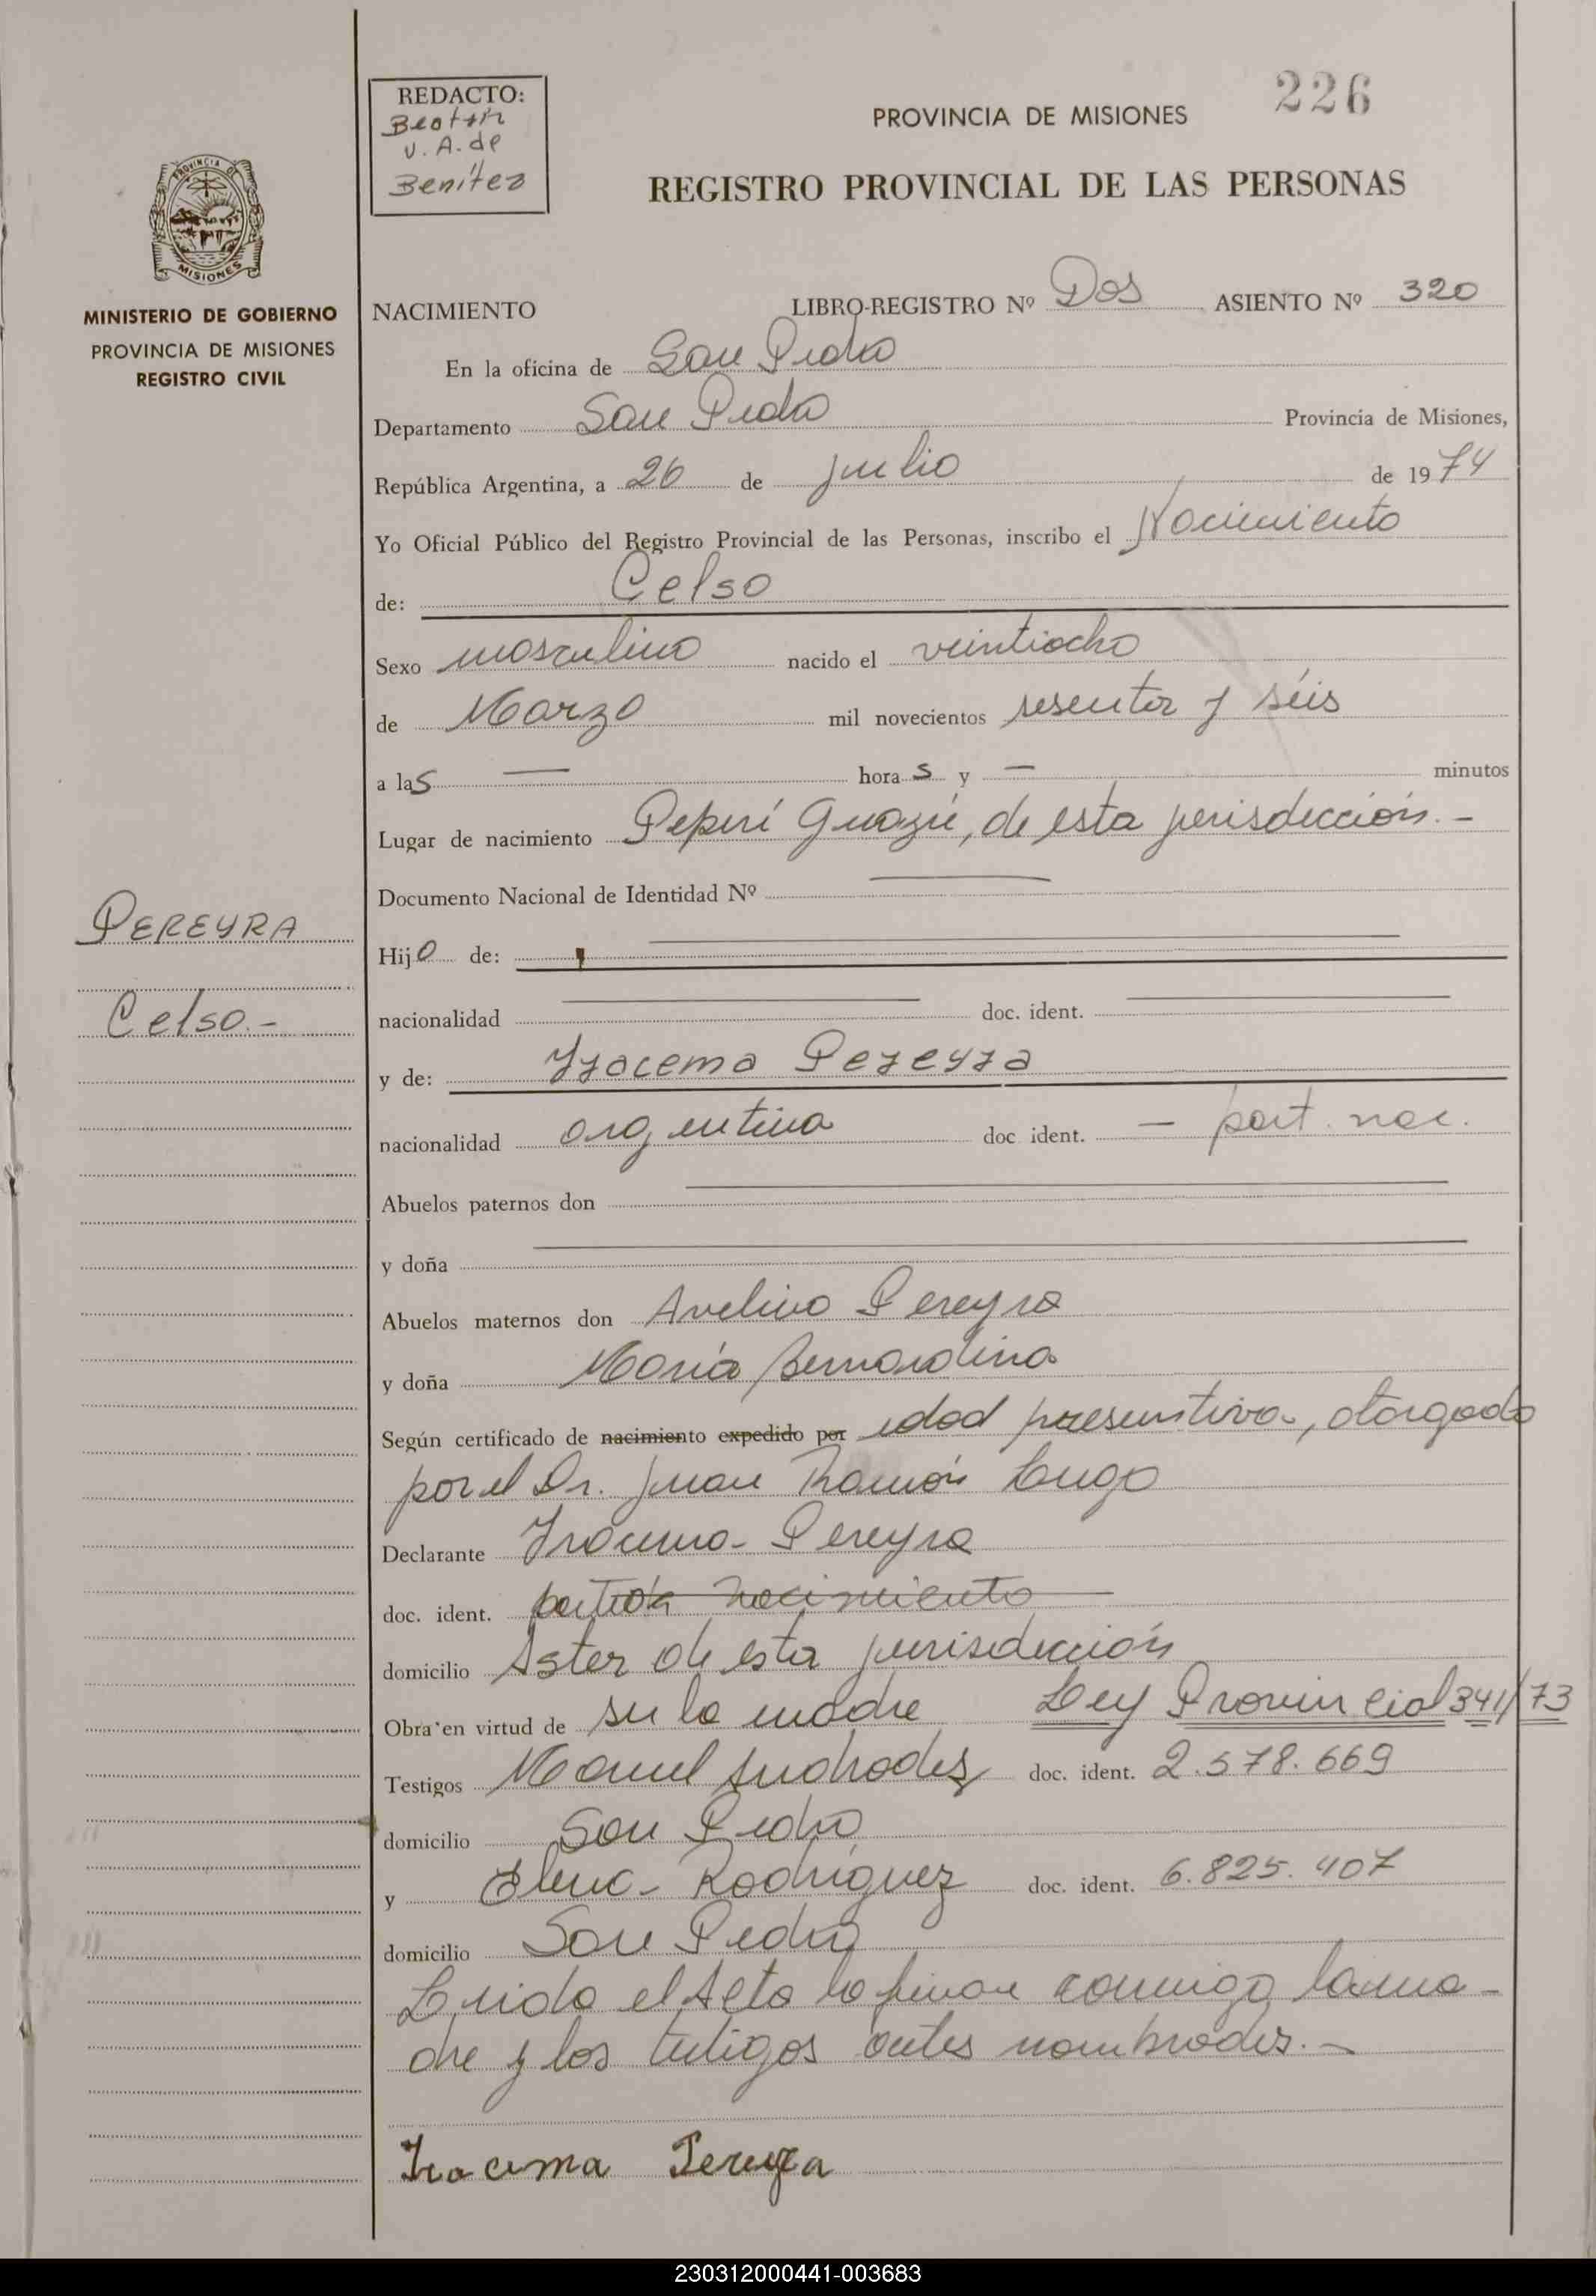 226
REDACTO:
Beatriz
V. A. de
Benítez
PROVINCIA DE MISIONES
REGISTRO PROVINCIAL DE LAS PERSONAS
PROVINCIA DE
MISIONES
MINISTERIO DE GOBIERNO
PROVINCIA DE MISIONES
REGISTRO CIVIL
NACIMIENTO LIBRO-REGISTRO Nº Dos ASIENTO Nº 320
En la oficina de San Pedro
Departamento San Pedro Provincia de Misiones,
República Argentina, a 26 de julio de 1974
Yo Oficial Público del Registro Provincial de las Personas, inscribo el Nacimiento
de: Celso
Sexo masculino nacido el veintiocho
de Marzo mil novecientos sesenta y séis
a las — horas y — minutos
Lugar de nacimiento Peperí Guazú, de esta jurisdección.-
Documento Nacional de Identidad Nº —
PEREYRA
Hijo de: —
Celso.-
nacionalidad — doc. ident. —
y de: Iracema Pereyra
nacionalidad argentina doc ident. — part. nac.
Abuelos paternos don —
y doña —
Abuelos maternos don Avelino Pereyra
y doña María Bernardina
Según certificado de nacimiento expedido por edad presuntiva, otorgado
por el Dr. Juan Ramón Lugo
Declarante Iracema Pereyra
doc. ident. partida nacimiento
domicilio Aster de esta jurisdección
Obra en virtud de su la madre Ley Provincial 341/73
Testigos Manuel Andrades doc. ident. 2.578.669
domicilio San Pedro
y Elena Rodríguez doc. ident. 6.825.407
domicilio San Pedro
Leida el Acta la firman conmigo la ma-
dre y los testigos antes nombrados.-
Iracema Pereyra
230312000441-003683